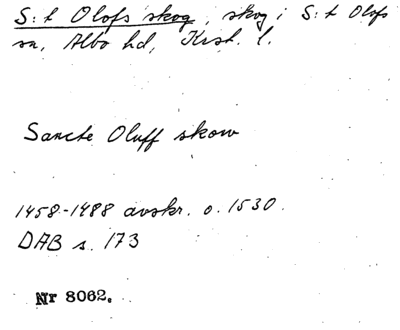 S:t Olofs skog, skog i S:t Olofs
sn, Albo hd, Krist. l.
Sancte Oluff skow
1458-1488 avskr. o. 1530.
DAB s. 173
Nr 8062.